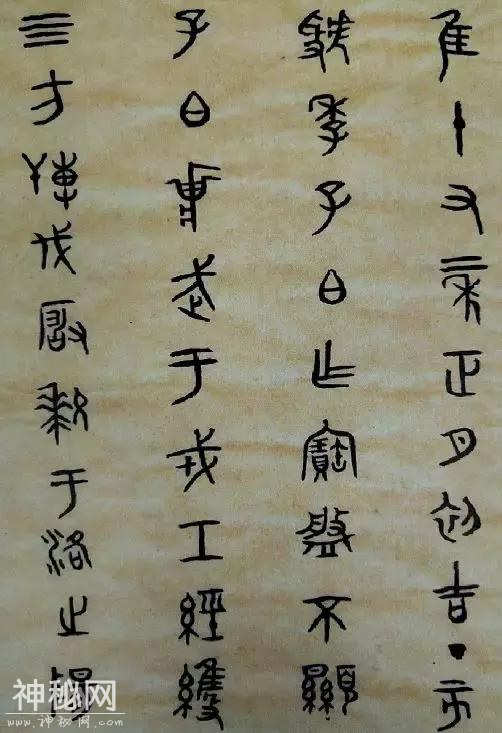 隹十又二年正月初吉丁亥
虢季子白乍寶盤不顯
子白𤕌武于戎工經維
四方博伐厰𤞤于洛之陽
神秘网
www.神秘网.com